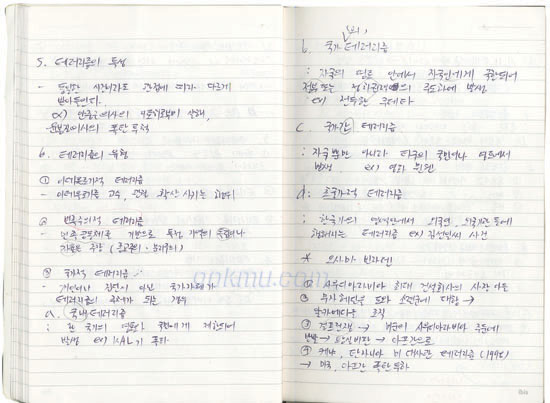 5. 테러리즘의 특성
- 동일한 사건이라도 관점에 따라 다르게
받아들인다.
ex) 안중근의사의 이토히로부미 살해,
윤봉길의사의 폭탄 투척
6. 테러리즘의 유형
① 이데올로기적 테러리즘
- 이데올로기를 고수, 관철, 확산시키는
② 민족주의적 테러리즘
- 민족공동체를 기반으로 특정 지역의 독립이나
자율을 주장
③ 국가적 테러리즘
- 개인이나 집단이 아닌 국가 자체가
테러리즘의 주체가 되는 경우
a. 국내테러리즘
: 한 국가의 영토와 국민에게 제한되어
발생 ex) KAL기 폭파
apkmu.com
b. 국가 테러리즘
: 자국의 영토 안에서 자국민에게 국한되어
정부 또는 정치권력의 주도하에 발생
ex)
c. 국가간 테러리즘
: 자국뿐만 아니라 타국의 국민이나 영토에서
발생. ex)
d. 초국가적 테러리즘
: 한 국가의 영역 안에서 외국인, 외국기관 등에
테러리즘 ex) 김선일씨 사건
* 오사마 빈라덴
① 사우디아라비아 최대 건설회사의 사장 아들
② 소련군에 대항 →
알카에다 조직
③ 걸프전쟁 → 미군이 사우디아라비아 주둔에
반발 → → 아프간으로
④ 케냐, 탄자니아 미 대사관 테러리즘 (1998)
→ 미국, 아프간 폭탄투하